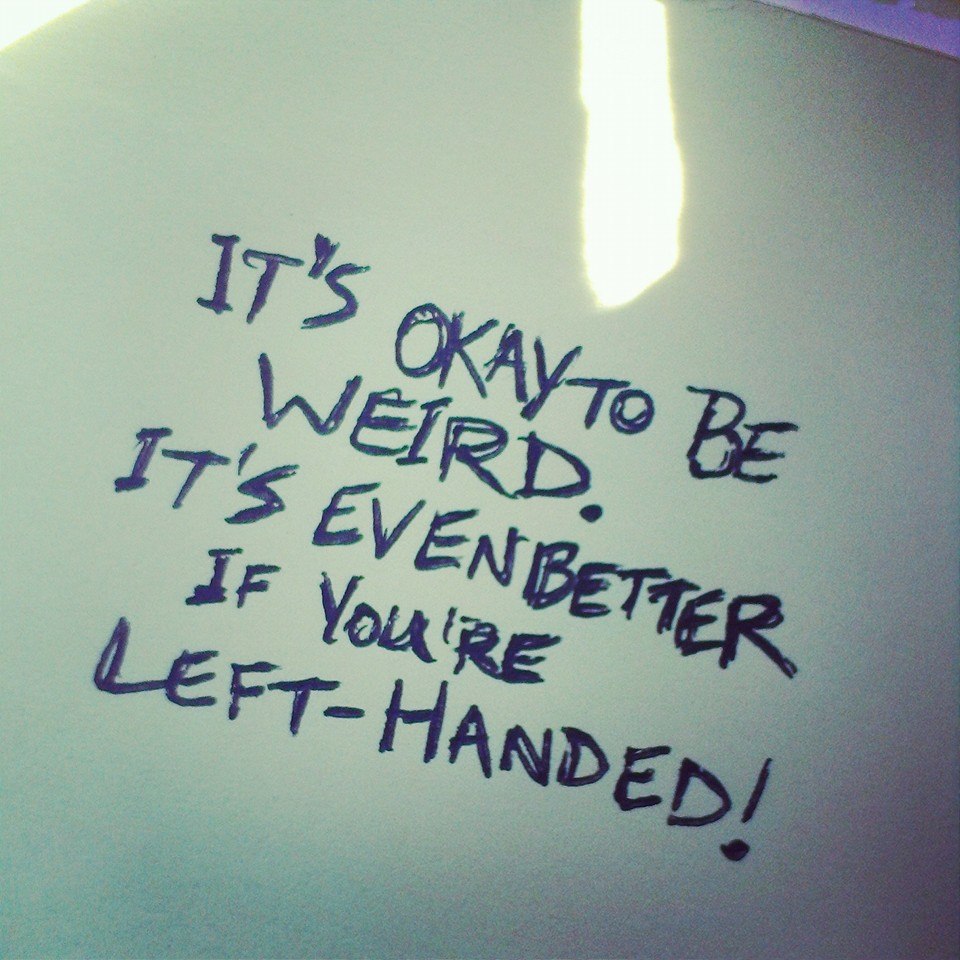 IT'S OKAY TO BE
WEIRD.
IT'S EVEN BETTER
IF YOU'RE
LEFT-HANDED!